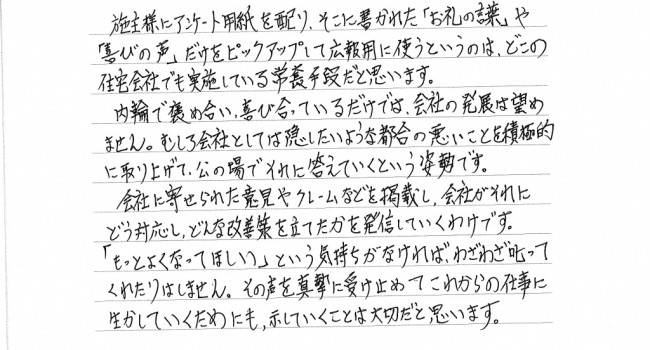 施主様にアンケート用紙を配り、そこに書かれた「お礼の言葉」や
「喜びの声」だけをピックアップして広報用に使うというのは、どこの
住宅会社でも実施している常套手段だと思います。
内輪で褒め合い、喜び合っているだけでは、会社の発展は望め
ません。むしろ会社としては隠したいような都合の悪いことを積極的
に取り上げて、公の場でそれに答えていくという姿勢です。
会社に寄せられた意見やクレームなどを掲載し、会社がそれに
どう対応し、どんな改善策を立てたかを発信していくわけです。
「もっとよくなってほしい」という気持ちがなければ、わざわざ叱って
くれたりはしません。その声を真摯に受け止めてこれからの仕事に
生かしていくためにも、示していくことは大切だと思います。